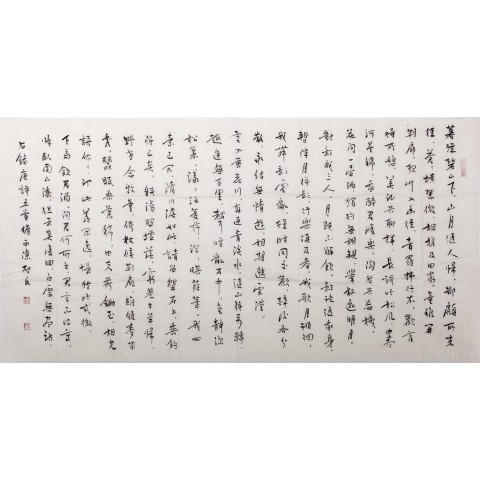 暮從碧山下,山月隨人歸,卻顧所來
徑,蒼蒼橫翠微。相攜及田家,童稚開
荊扉。綠竹入幽徑,青蘿拂行衣。歡言
得所憩,美酒共聊揮。長歌吟松風,曲盡
河星稀。我醉君復樂,陶然共忘機。
花間一壺酒,獨酌無相親。舉杯邀明月,
對影成三人。月既不解飲,影徒隨我身。
暫伴月將影,行樂須及春。我歌月徘徊,
我舞影零亂。醒時同交歡,醉後各分
散。永結無情遊,相期邈雲漢。
言入黃花川,每逐青溪水。隨山將萬轉,
趣途無百里。聲喧亂石中,色靜深
松裏。漾漾泛菱荇,澄澄映葭葦。我心
素已閒,清川澹如此。請留盤石上,垂釣
將已矣。斜陽照墟落,窮巷牛羊歸。
野老念牧童,倚杖候荊扉。雉雊麥苗
秀,蠶眠桑葉稀。田夫荷鋤至,相見
語依依。即此羨閒逸,悵然吟式微。
下馬飲君酒,問君何所之。君言不得意,
歸臥南山陲。但去莫復問,白雲無盡時
右錄唐詩五首